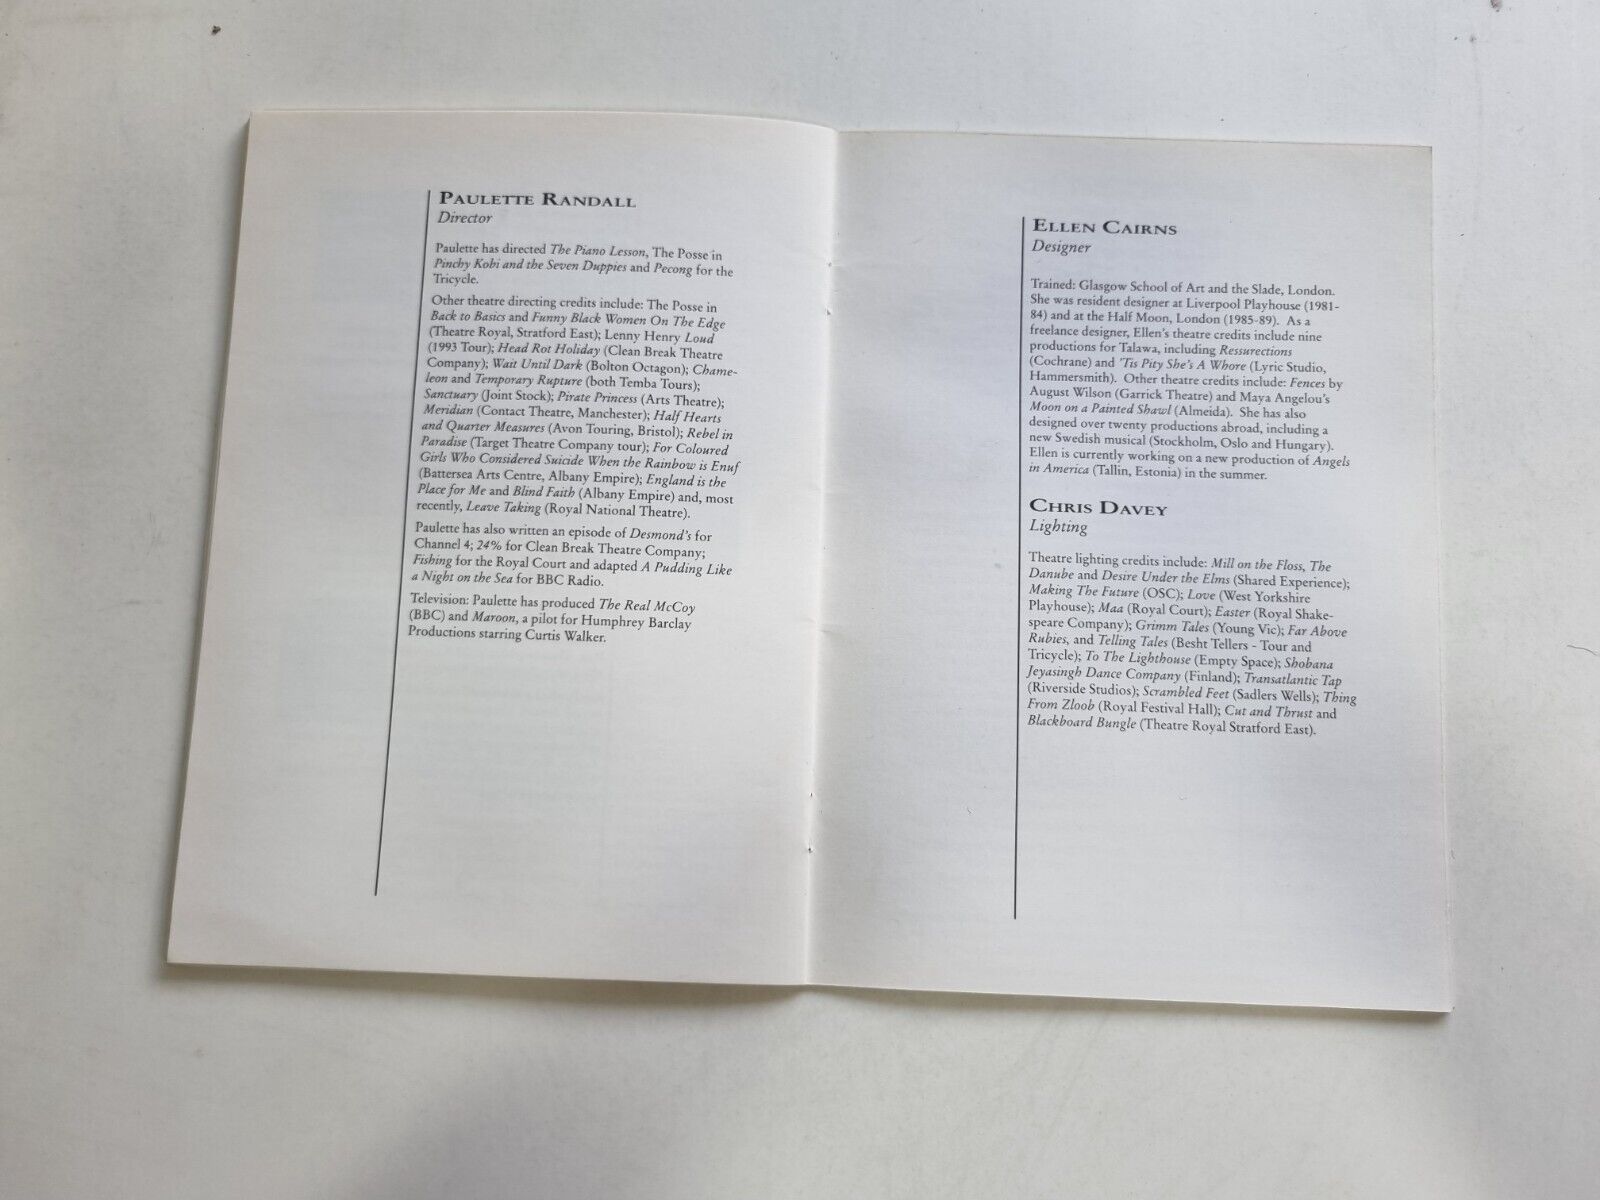 PAULETTE RANDALL
Director
Paulette has directed The Piano Lesson, The Posse in
Pinchy Kobi and the Seven Duppies and Pecong for the
Tricycle.
Other theatre directing credits include: The Posse in
Back to Basics and Funny Black Women On The Edge
(Theatre Royal, Stratford East); Lenny Henry Loud
(1993 Tour); Head Rot Holiday (Clean Break Theatre
Company); Wait Until Dark (Bolton Octagon); Chame-
leon and Temporary Rupture (both Temba Tours);
Sanctuary (Joint Stock); Pirate Princess (Arts Theatre);
Meridian (Contact Theatre, Manchester); Half Hearts
and Quarter Measures (Avon Touring, Bristol); Rebel in
Paradise (Target Theatre Company tour); For Coloured
Girls Who Considered Suicide When the Rainbow is Enuf
(Battersea Arts Centre, Albany Empire); England is the
Place for Me and Blind Faith (Albany Empire) and, most
recently, Leave Taking (Royal National Theatre).
Paulette has also written an episode of Desmond's for
Channel 4; 24% for Clean Break Theatre Company;
Fishing for the Royal Court and adapted A Pudding Like
a Night on the Sea for BBC Radio.
Television: Paulette has produced The Real McCoy
(BBC) and Maroon, a pilot for Humphrey Barclay
Productions starring Curtis Walker.
ELLEN CAIRNS
Designer
Trained: Glasgow School of Art and the Slade, London.
She was resident designer at Liverpool Playhouse (1981-
84) and at the Half Moon, London (1985-89). As a
freelance designer, Ellen's theatre credits include nine
productions for Talawa, including Ressurections
(Cochrane) and 'Tis Pity She's A Whore (Lyric Studio,
Hammersmith). Other theatre credits include: Fences by
August Wilson (Garrick Theatre) and Maya Angelou's
Moon on a Painted Shawl (Almeida). She has also
designed over twenty productions abroad, including a
new Swedish musical (Stockholm, Oslo and Hungary).
Ellen is currently working on a new production of Angels
in America (Tallin, Estonia) in the summer.
CHRIS DAVEY
Lighting
Theatre lighting credits include: Mill on the Floss, The
Danube and Desire Under the Elms (Shared Experience);
Making The Future (OSC); Love (West Yorkshire
Playhouse); Maa (Royal Court); Easter (Royal Shake-
speare Company); Grimm Tales (Young Vic); Far Above
Rubies, and Telling Tales (Besht Tellers - Tour and
Tricycle); To The Lighthouse (Empty Space); Shobana
Jeyasingh Dance Company (Finland); Transatlantic Tap
(Riverside Studios); Scrambled Feet (Sadlers Wells); Thing
From Zloob (Royal Festival Hall); Cut and Thrust and
Blackboard Bungle (Theatre Royal Stratford East).